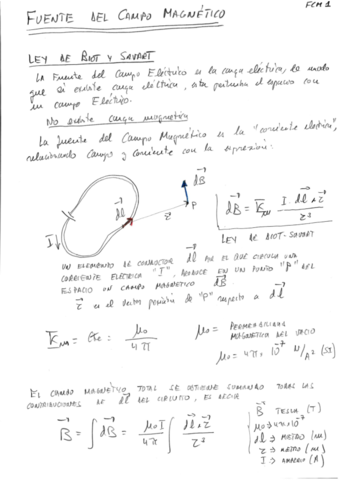 FUENTE DEL CAMPO MAGNÉTICO
FCM 1
LEY DE BIOT Y SAVART
La Fuente del Campo Eléctrico es la carga eléctrica, de modo
que si existe carga eléctrica, esta perturba el espacio con
un campo Eléctrico.
No existe carga magnética
La fuente del Campo Magnético es la "corriente eléctrica",
relacionando campo y corriente con la expresión:
dB
dl
r
P
I
dB = Km I dl x r / r²
LEY DE BIOT-SAVART
UN ELEMENTO DE CONDUCTOR dl POR EL QUE CIRCULA UNA
CORRIENTE ELÉCTRICA "I", PRODUCE EN UN PUNTO "P" DEL
ESPACIO UN CAMPO MAGNÉTICO dB
r es el vector posición de "P" respecto a dl
Km = Cte = μ₀ / 4π
μ₀ = PERMEABILIDAD
MAGNÉTICA DEL VACÍO
μ₀ = 4π x 10⁻⁷ N/A² (SI)
EL CAMPO MAGNÉTICO TOTAL SE OBTIENE SUMANDO TODAS LAS
CONTRIBUCIONES DE dl DEL CIRCUITO, ES DECIR
B = ∫ dB = μ₀ I / 4π ∫ dl x r / r²
B TESLA (T)
μ₀ → 4π x 10⁻⁷
dl → METRO (m)
r → METRO (m)
I → AMPERIO (A)